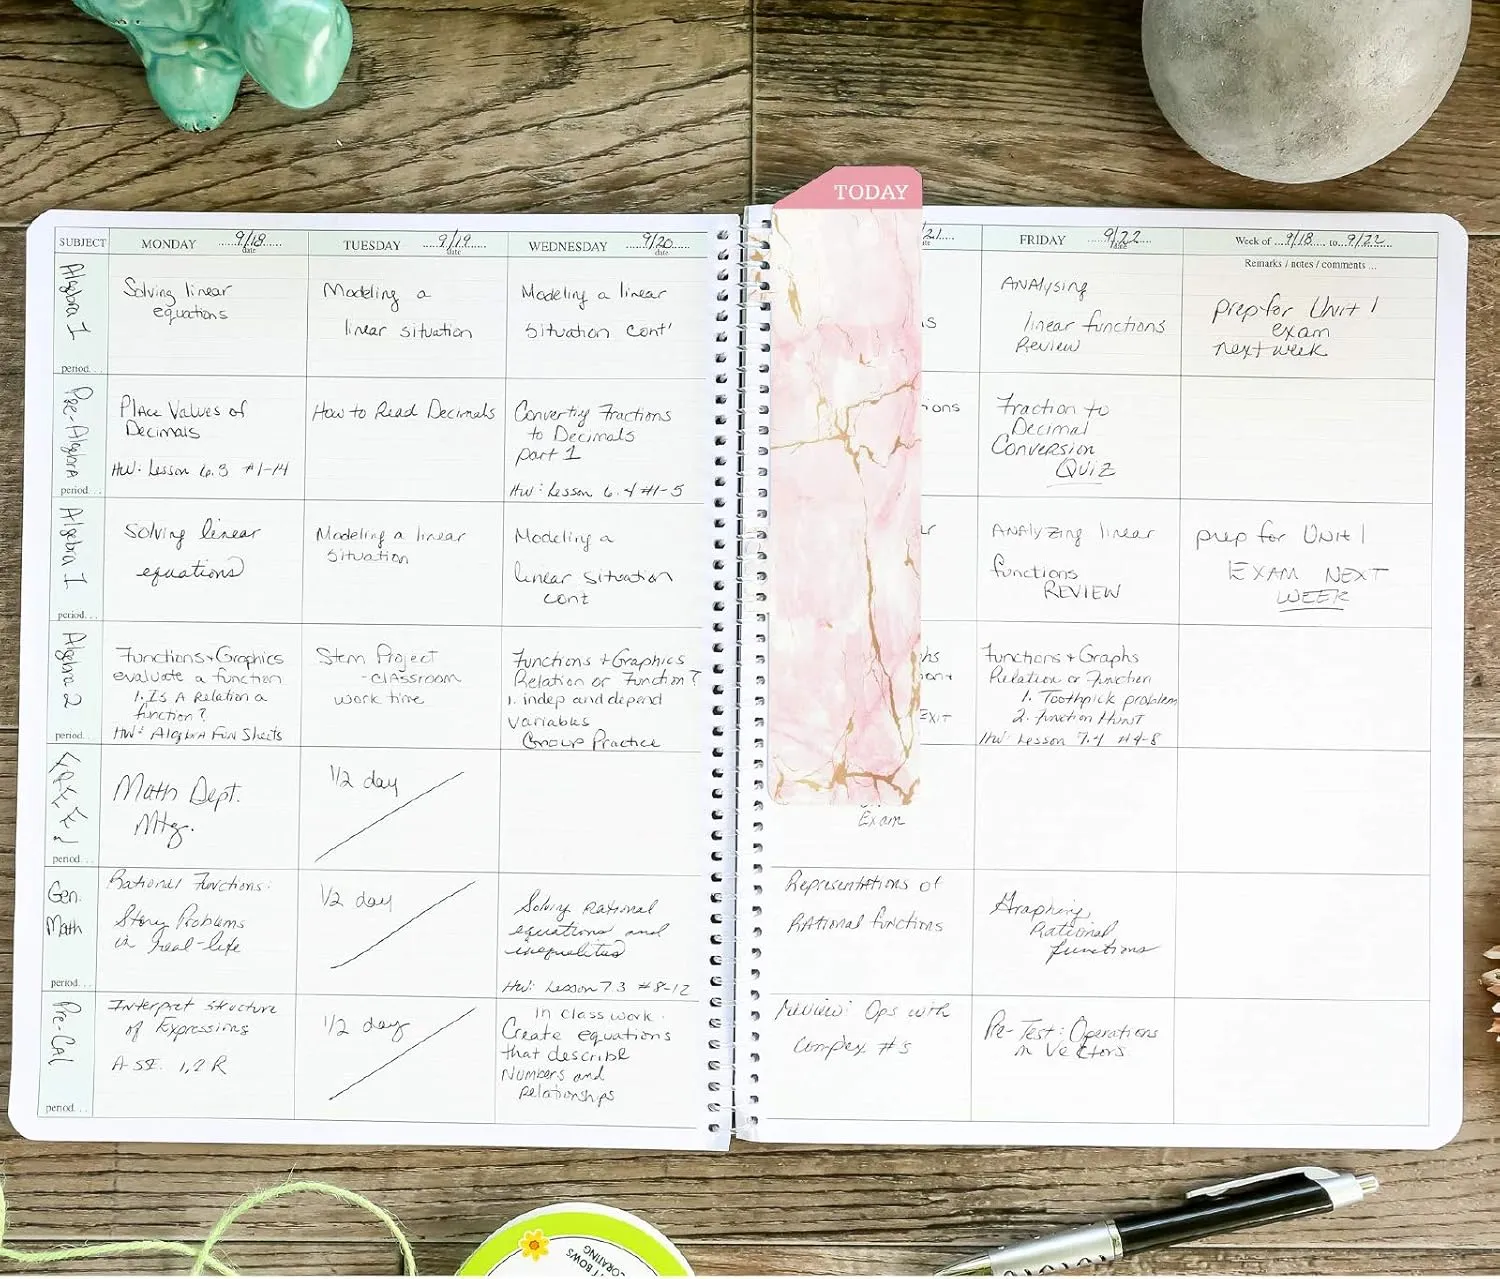 TODAY
SUBJECT MONDAY 9/18 date TUESDAY 9/19 date WEDNESDAY 9/20 date
21 FRIDAY 9/22 date Week of 9/18 to 9/22
Remarks / notes / comments ...
Algebra 1
period...
Solving linear
equations
Modeling a
linear situation
Modeling a linear
situation cont'
Analysing
linear functions
Review
prep for Unit 1
exam
next week
Pre-Algebra
period...
Place Values of
Decimals
HW: Lesson 6.3 #1-14
How to Read Decimals
Converting Fractions
to Decimals
part 1
HW: Lesson 6.4 #1-5
ions
Fraction to
Decimal
Conversion
Quiz
Algebra 1
period...
Solving linear
equations
Modeling a linear
situation
Modeling a
linear situation
cont
Analyzing linear
functions
REVIEW
prep for Unit 1
EXAM NEXT
WEEK
Algebra 2
period...
Functions + Graphics
evaluate a function
1. Is A Relation a
function?
HW: Algebra Fun Sheets
Stem Project
- classroom
work time
Functions + Graphics
Relation or Function?
1. indep and depend
variables
Group Practice
EXIT
Functions + Graphs
Relation or Function
1. Toothpick problem
2. Function Hunt
HW: Lesson 7.4 #4-8
period...
Math Dept.
Mtg.
1/2 day
Exam
Gen.
Math
period...
Rational Functions:
Story Problems
in real-life
1/2 day
Solving rational
equations and
inequalities
HW: Lesson 7.3 #8-12
Representations of
Rational functions
Graphing
Rational
functions
Pre-Cal
period...
Interpret structure
of Expressions
A-SE. 1,2 R
1/2 day
In class work.
Create equations
that describe
Numbers and
relationships
Review: Ops with
complex #'s
Pre-Test: Operations
in Vectors
BOWS
ORATING